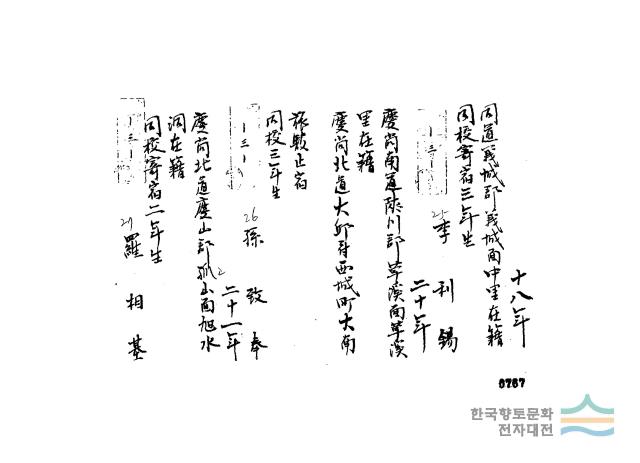 十八年
同道義城郡義城面中里在籍
同校寄宿三年生
25 李利錫
二十年
慶尚南道陜川郡草溪面草溪
里在籍
慶尚北道大邱府西城町大南
旅館止宿
同校三年生
26 孫致奉
二十一年
慶尚北道慶山郡孤山面旭水
洞在籍
同校寄宿二年生
27 羅相基
0767
한국향토문화
전자대전